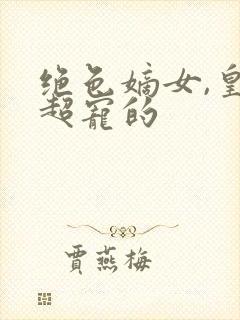 绝色嫡女,皇
超宠的
贾燕梅